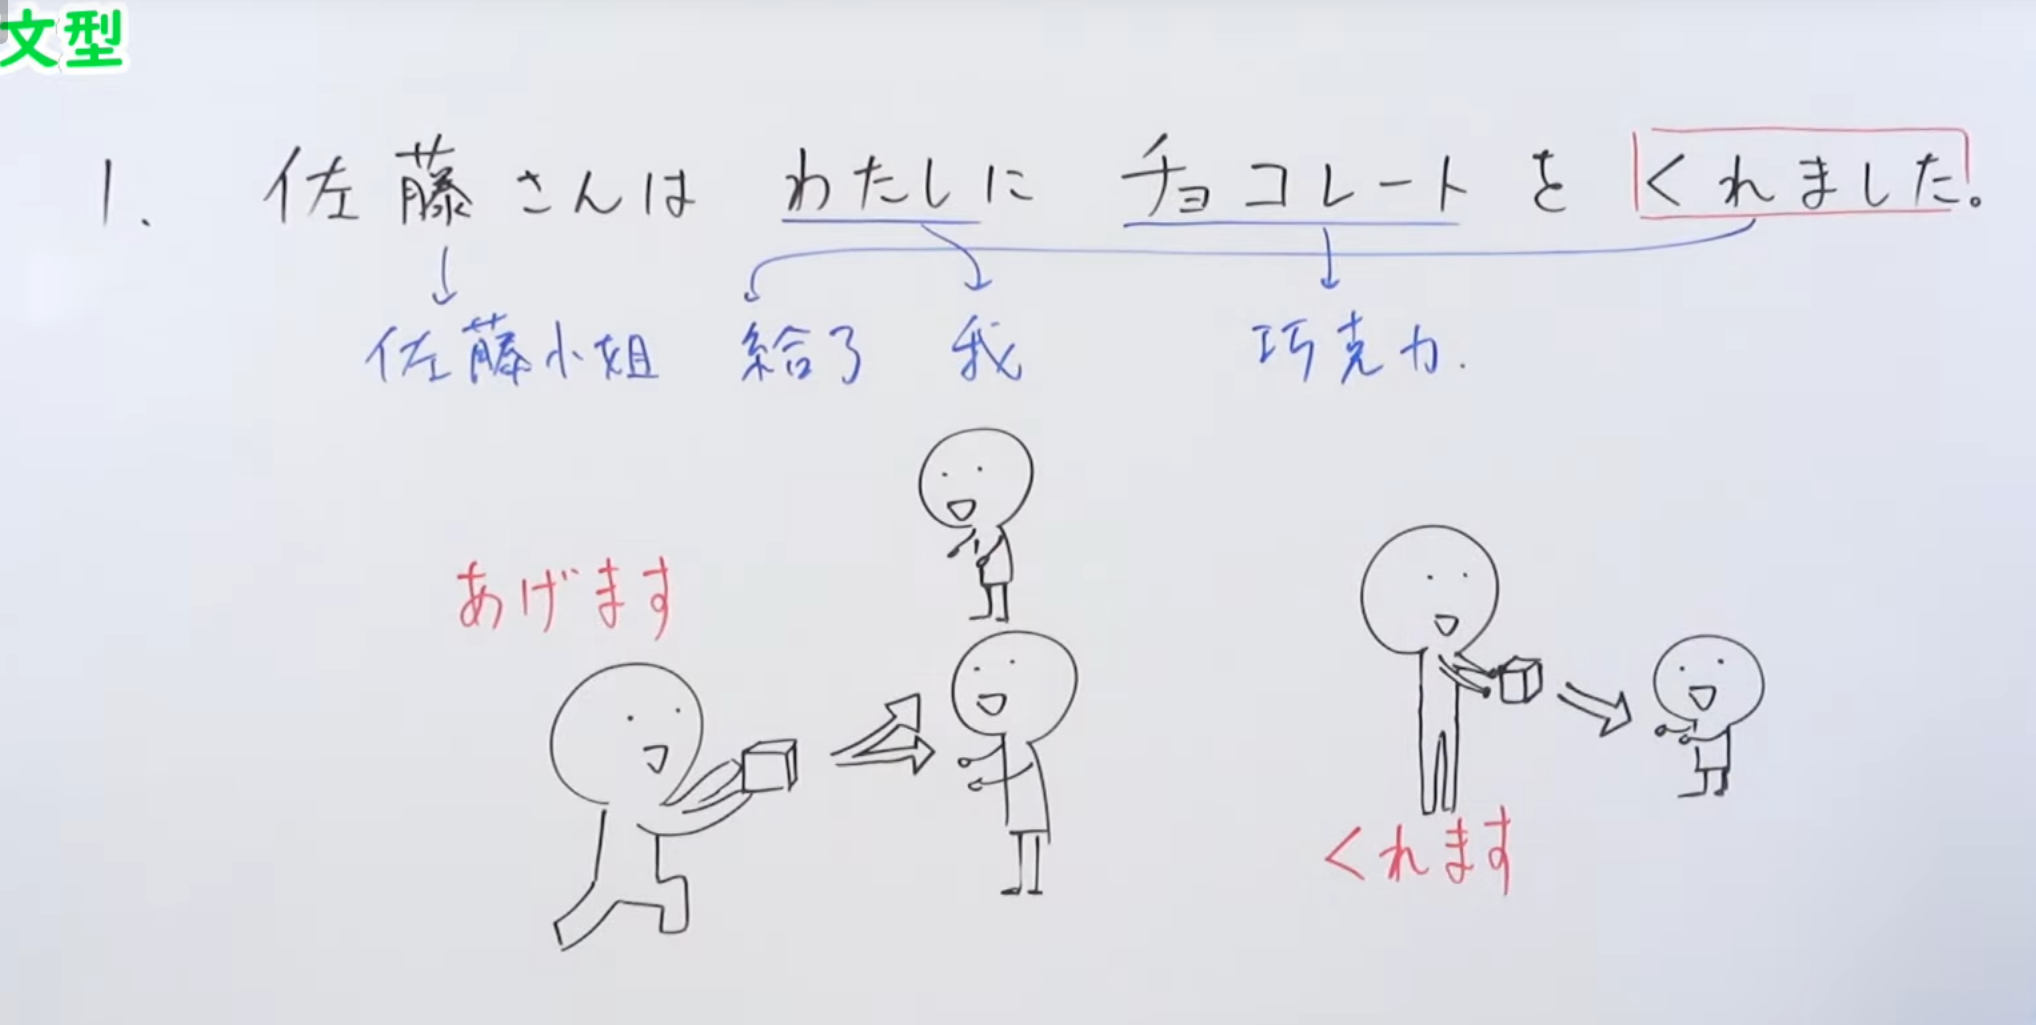 文型
1. 佐藤さんは わたしに チョコレート を くれました。
佐藤小姐 給了 我 巧克力.
あげます
くれます